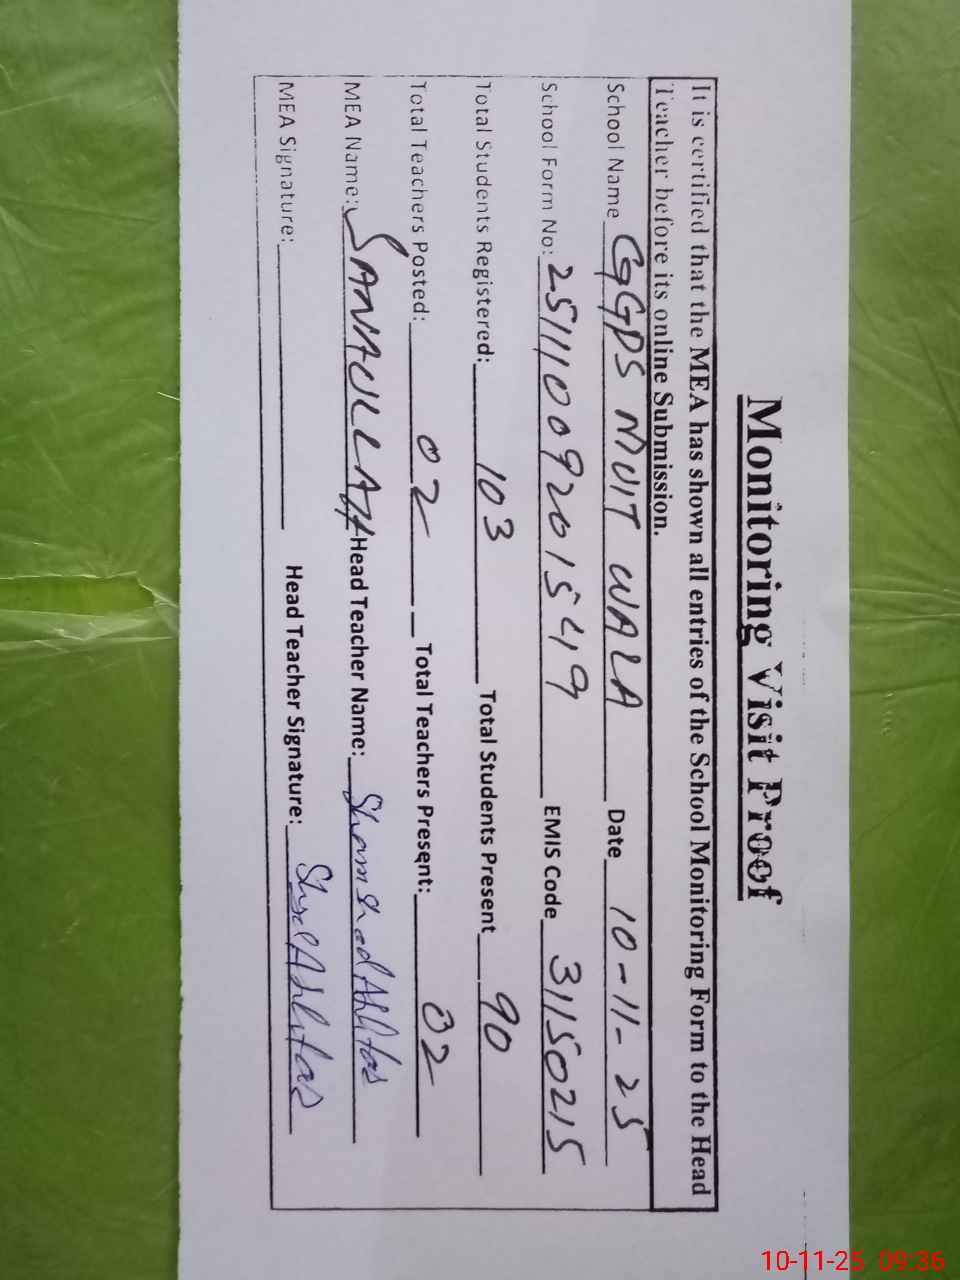 Monitoring Visit Proof
It is certified that the MEA has shown all entries of the School Monitoring Form to the Head
Teacher before its online Submission.
School Name GGPS MUIT WALA Date 10-11-25
School Form No: 25111009201549 EMIS Code 31150215
Total Students Registered: 103 Total Students Present 90
Total Teachers Posted: 02 Total Teachers Present: 02
MEA Name: SANAULLAH Head Teacher Name: Shamshad
MEA Signature: Head Teacher Signature:
10-11-25 09:36